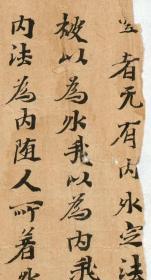 者无有内外定法
彼以為外我以為内我
内法為内随人所著外